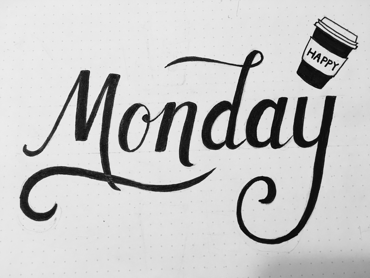 HAPPY
Monday